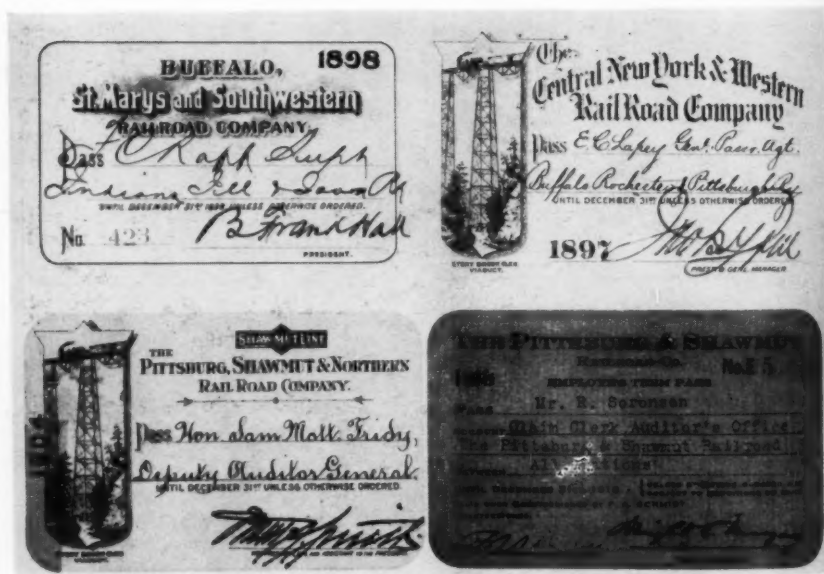 BUFFALO, 1898
St. Marys and Southwestern
RAILROAD COMPANY.
Pass F C Rapp Supt
Indiana Ill & Iowa Ry
UNTIL DECEMBER 31ST 1898 UNLESS OTHERWISE ORDERED.
No. 423 B Frank Hall
PRESIDENT.
The
Central New York & Western
Rail Road Company
Pass E. C. Lapey Genl. Pass. Agt.
Buffalo Rochester & Pittsburgh Ry
UNTIL DECEMBER 31ST UNLESS OTHERWISE ORDERED
1897
STONY BROOK GLEN
VIADUCT.
PREST & GENL MANAGER
SHAWMUT LINE
THE
PITTSBURG, SHAWMUT & NORTHERN
RAIL ROAD COMPANY.
Pass Hon. Sam Matt. Fridy,
Deputy Auditor General.
UNTIL DECEMBER 31ST UNLESS OTHERWISE ORDERED.
STONY BROOK GLEN
VIADUCT.
AND ASSISTANT TO THE PRESIDENT.
THE PITTSBURG & SHAWMUT
RAILROAD CO.
No.E 5
EMPLOYES TERM PASS
PASS Mr. R. Sorensen
Claim Clerk Auditor's Office
The Pittsburg & Shawmut Railroad
BETWEEN All Stations